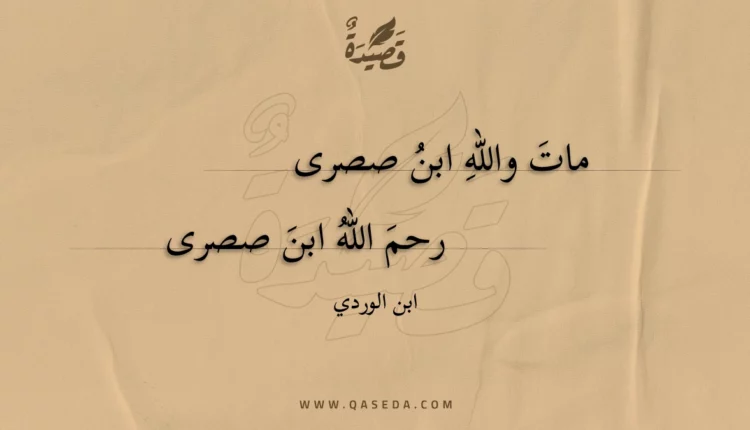 قَصِيدَةٌ
ماتَ واللهِ ابنُ صصرى
رحمَ اللهُ ابنَ صصرى
ابن الوردي
WWW.QASEDA.COM